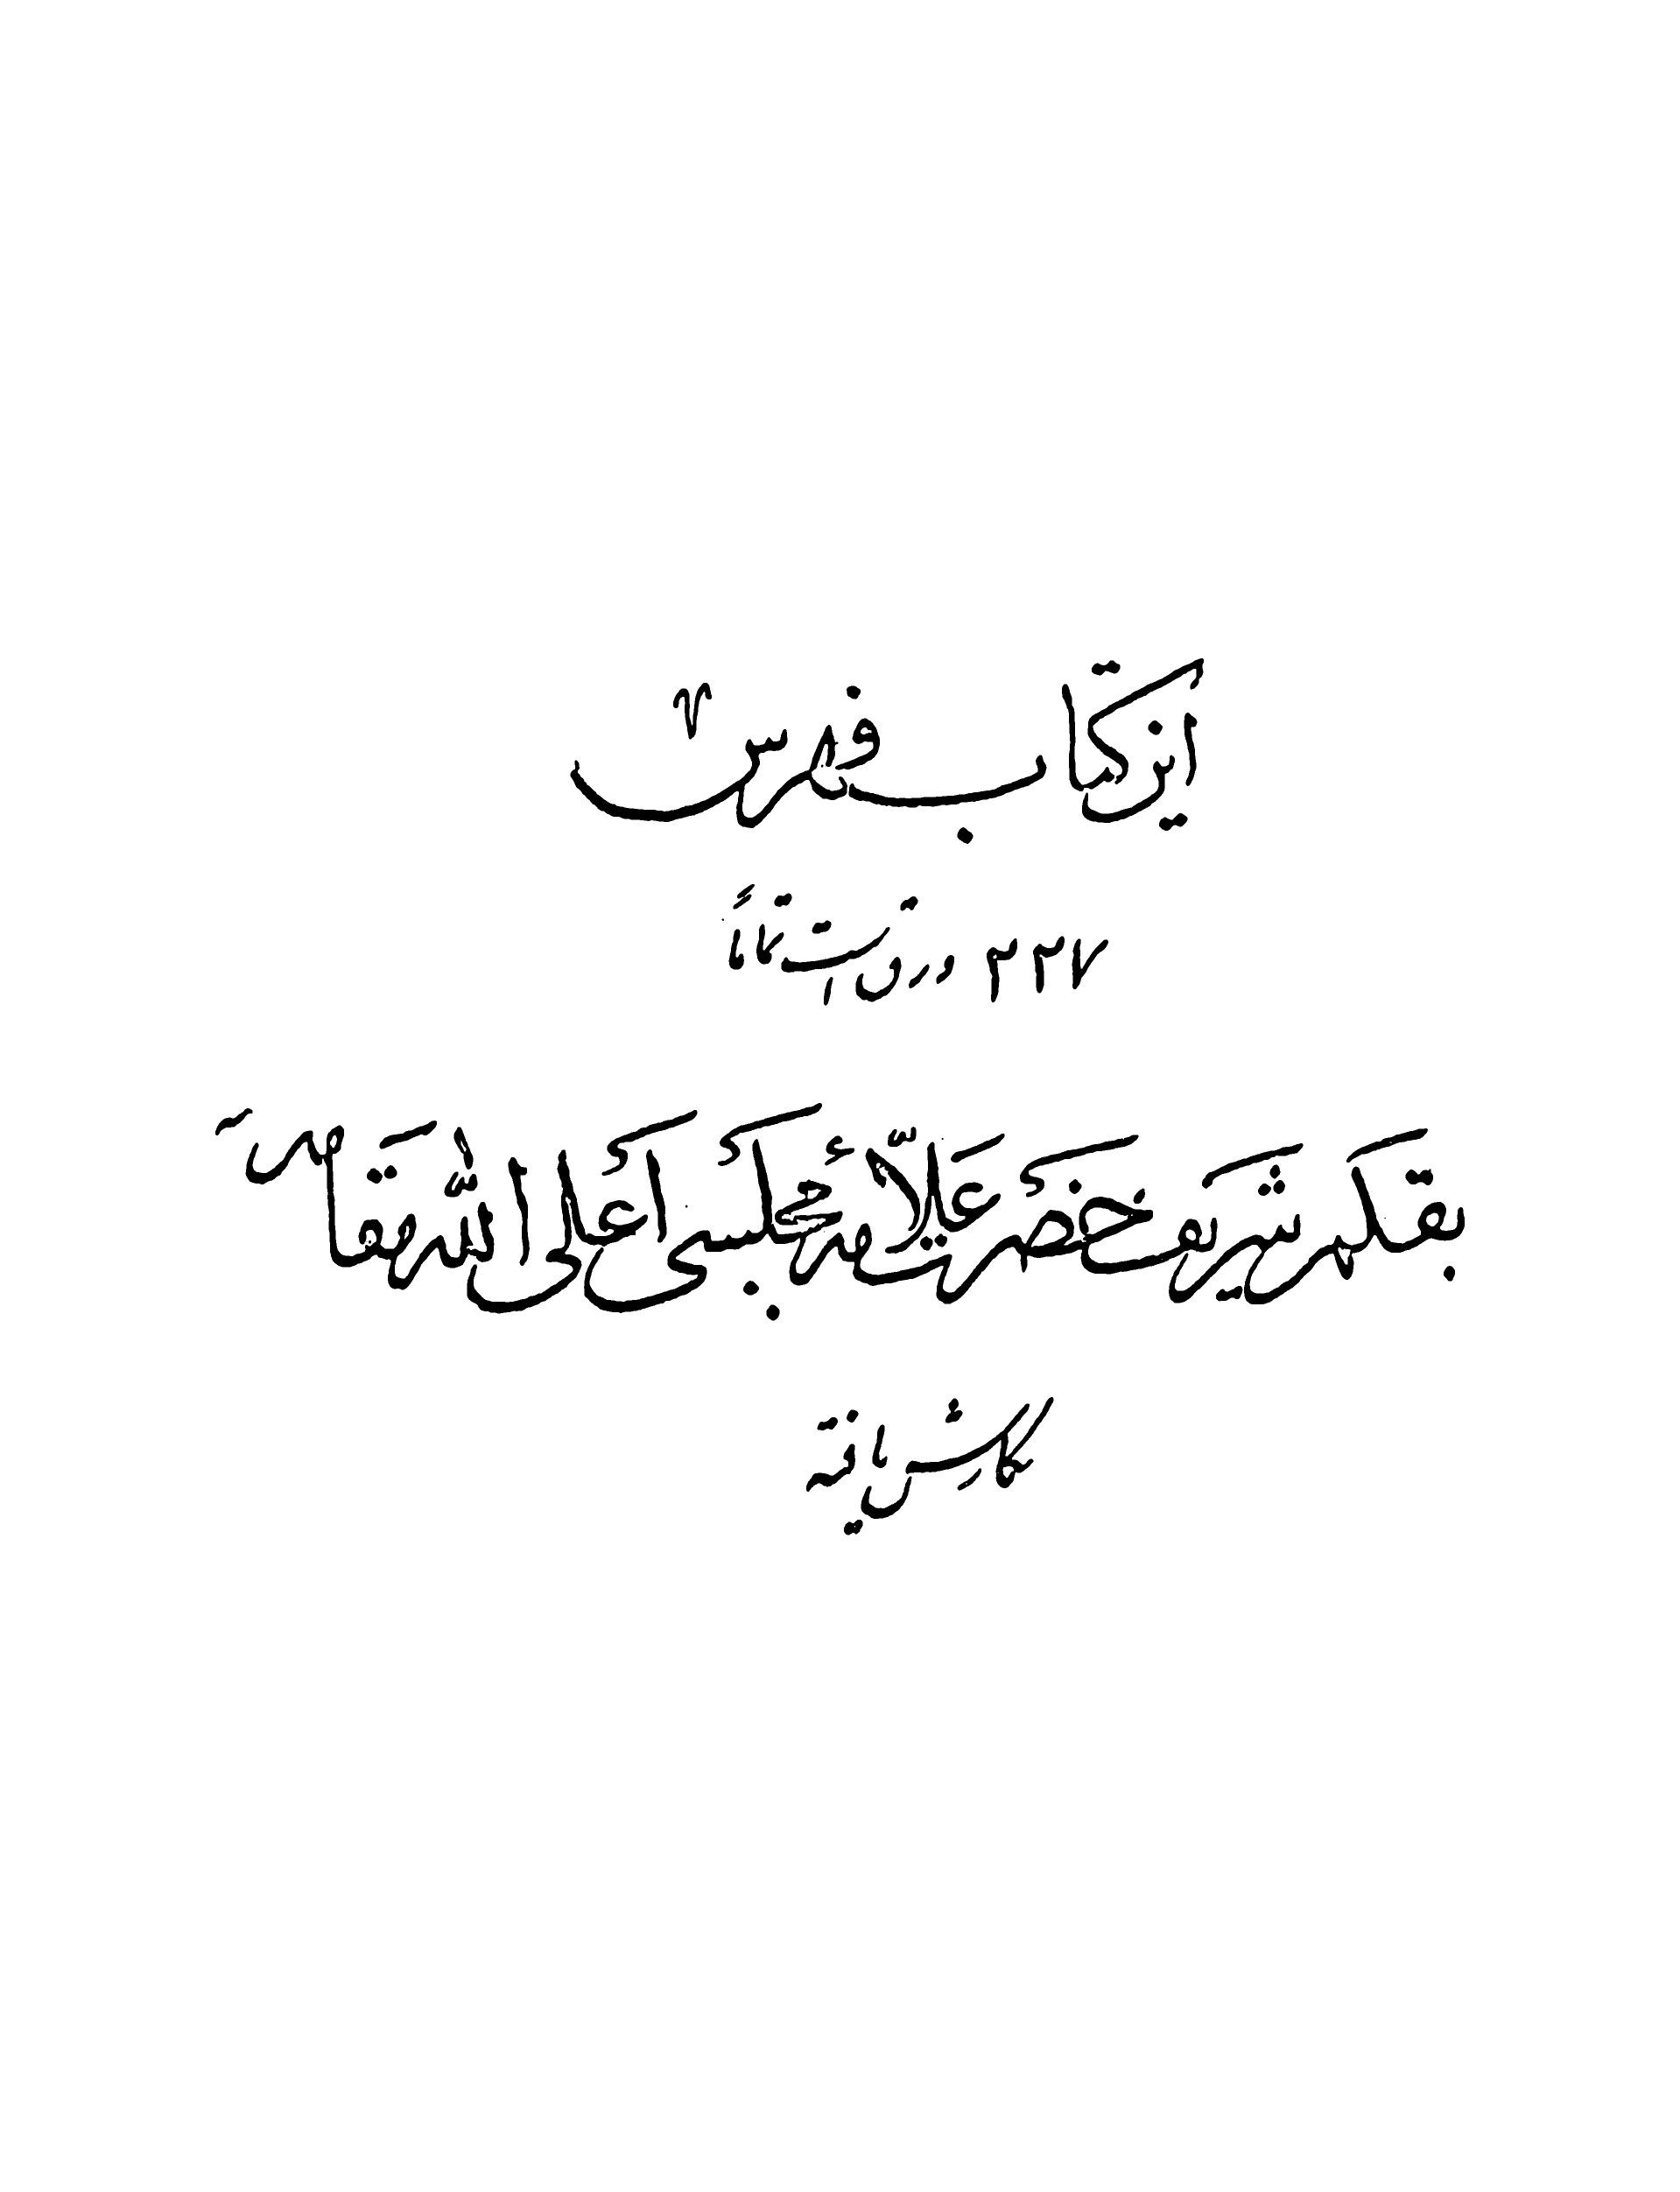 این کتاب فهرس
۲۲۷ ورق است تماماً
بقلم شریف حضرت علامه مجلسی اعلی الله مقامه
نگارش یافته